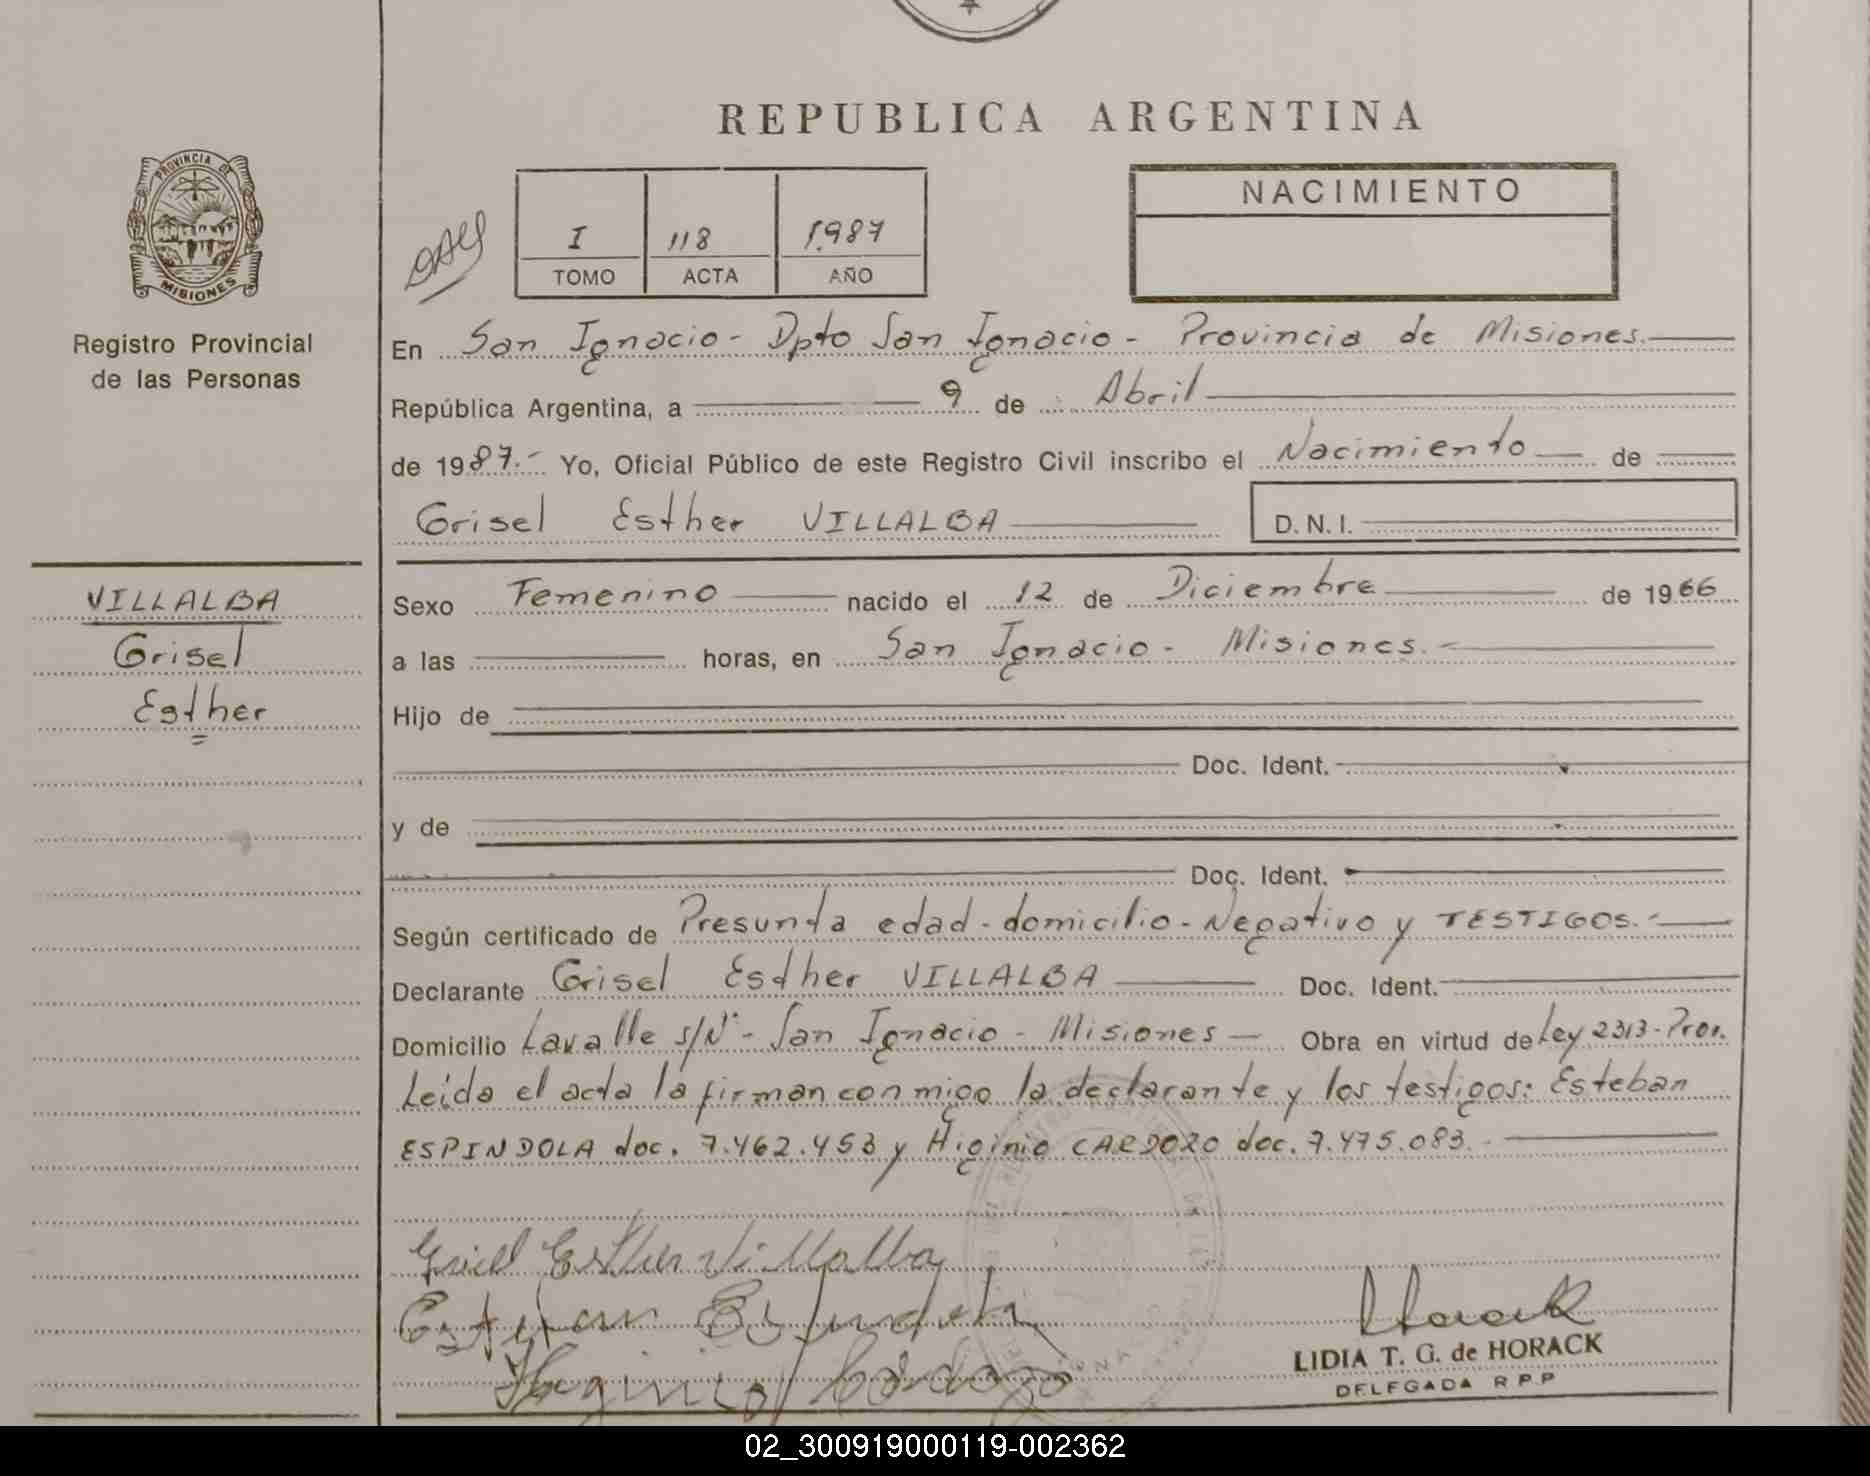 REPUBLICA ARGENTINA
PROVINCIA DE
MISIONES
Registro Provincial
de las Personas
I 118 1987
TOMO ACTA AÑO
NACIMIENTO
En San Ignacio - Dpto San Ignacio - Provincia de Misiones.
República Argentina, a 9 de Abril
de 1987.- Yo, Oficial Público de este Registro Civil inscribo el Nacimiento de
Grisel Esther VILLALBA D.N.I.
VILLALBA
Grisel
Esther
Sexo Femenino nacido el 12 de Diciembre de 1966
a las horas, en San Ignacio - Misiones.-
Hijo de
Doc. Ident.
y de
Doc. Ident.
Según certificado de Presunta edad - domicilio - Negativo y TESTIGOS.-
Declarante Grisel Esther VILLALBA Doc. Ident.
Domicilio Lavalle s/Nº - San Ignacio - Misiones - Obra en virtud de Ley 2313 - Prov.
Leída el acta la firman conmigo la declarante y los testigos: Esteban
ESPINDOLA doc. 7.462.453 y Higinio CARDOZO doc. 7.475.083.-
Grisel Esther Villalba
Esteban Espindola
Higinio Cardozo
Horack
LIDIA T. G. de HORACK
DELEGADA R P P
02_300919000119-002362